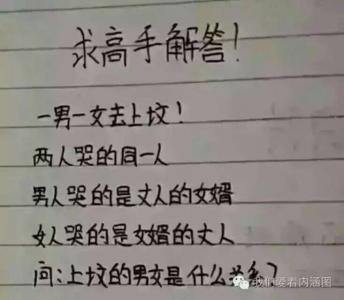 求高手解答!
一男一女去上坟!
两人哭的同一人
男人哭的是丈人的女婿
女人哭的是女婿的丈人
问:上坟的男女是什么关系?
我们爱看内涵图